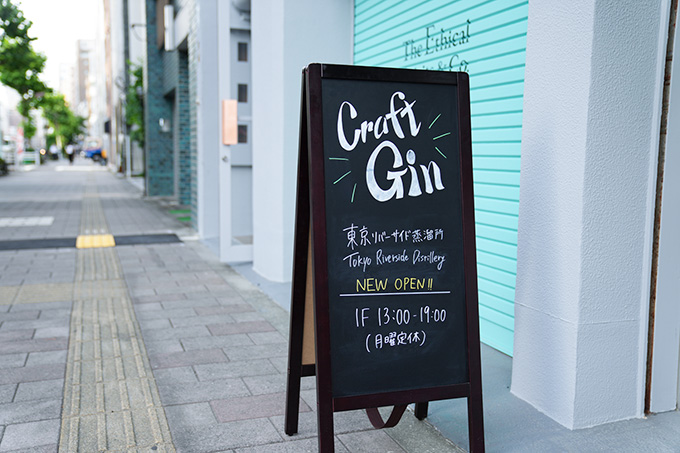 The Ethical
& Co.
Craft
Gin
東京リバーサイド蒸溜所
Tokyo Riverside Distillery
NEW OPEN!!
1F 13:00-19:00
(月曜定休)